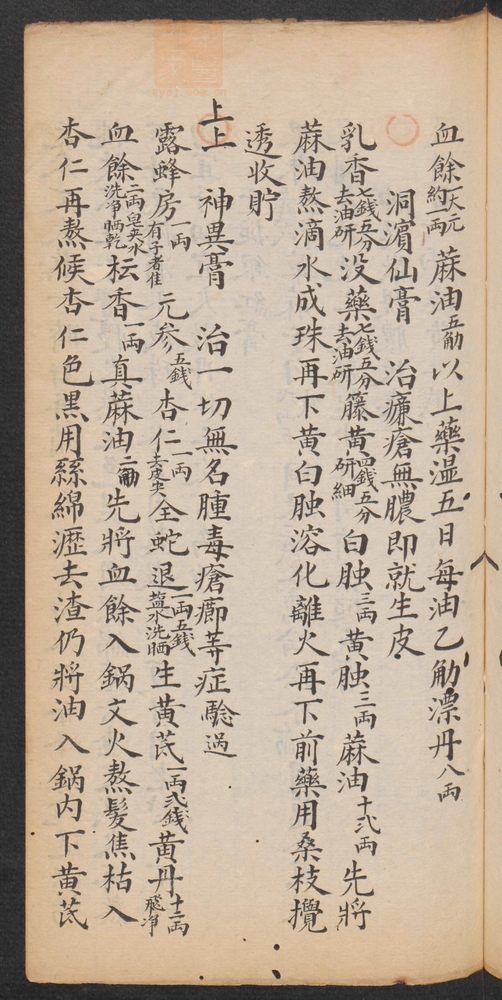 血餘一大元約一兩蔴油五觔以上藥溫五日每油乙觔漂丹八兩
洞濱仙膏 治臁瘡無膿即就生皮
乳香七錢五分去油研没藥七錢五分去油研籐黃四錢五分研細白䖳三兩黃䖳三兩蔴油十弍兩先將
蔴油熬滴水成珠再下黃白䖳溶化離火再下前藥用桑枝攪
透收貯
上上 神異膏 治一切無名腫毒瘡癤等症騐過
露蜂房一兩有子者佳元参五錢杏仁一兩去皮尖全蛇退一兩五錢鹽水洗晒生黃芪一兩弍錢黃丹十二兩飛净
血餘二兩皂莢水洗净晒乾枟香一兩真蔴油二觔先將血餘入鍋文火熬髮焦枯入
杏仁再熬候杏仁色黑用絲綿瀝去渣仍將油入鍋内下黃芪